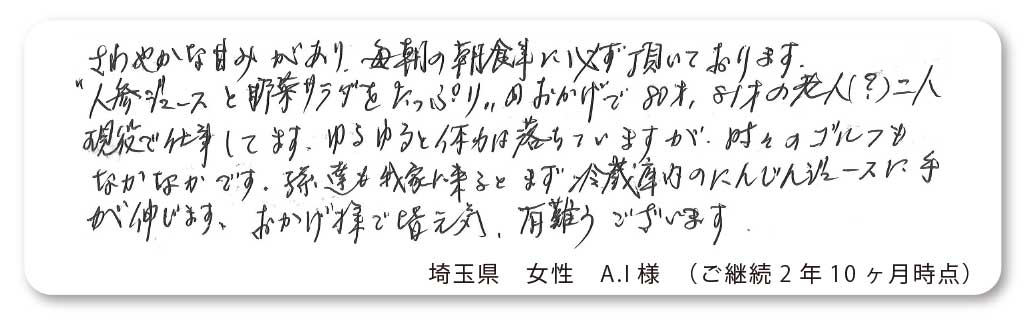 さわやかな甘みがあり、毎朝の朝食事に必ず頂いております.
"人参ジュースと野菜サラダをたっぷり"のおかげで80才,81才の老人(?)二人
現役で仕事してます、ゆるゆると体力は落ちていますが、時々のゴルフも
なかなかです。孫達も我家に来るとまず冷蔵庫内のにんじんジュースに手
が伸びます、おかげ様で皆元気、有難うございます.
埼玉県　女性　A.I 様　（ご継続 2 年 10 ヶ月時点）